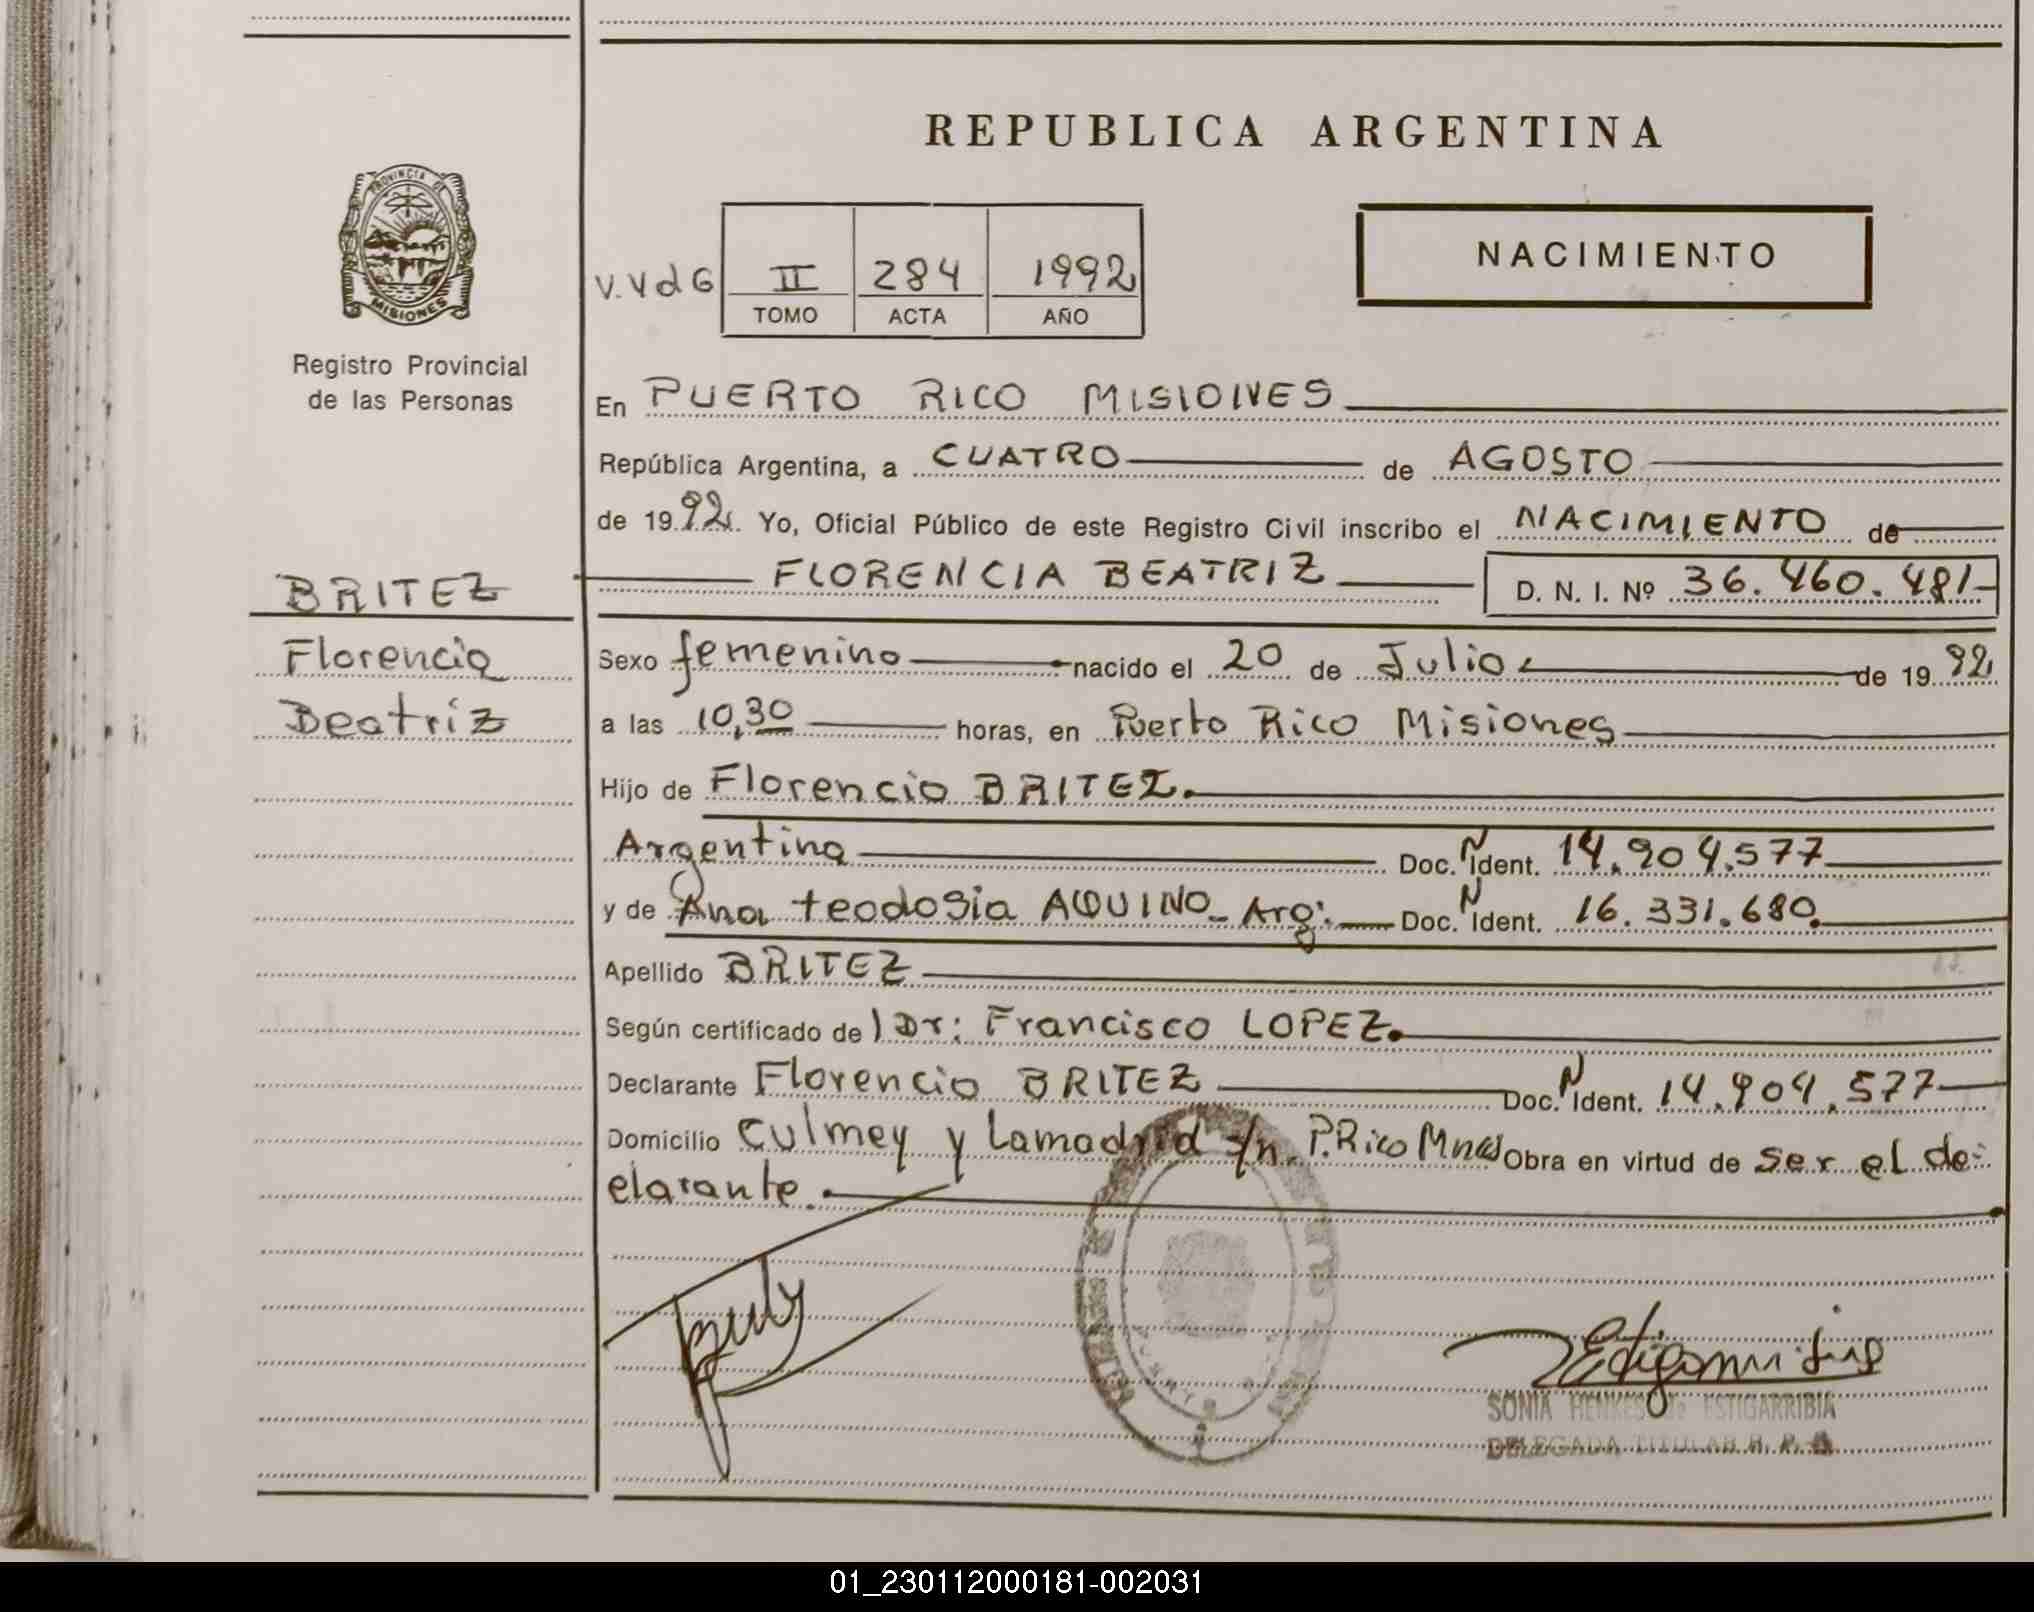 REPUBLICA ARGENTINA
PROVINCIA DE
MISIONES
Registro Provincial
de las Personas
V.VdG
II 284 1992
TOMO ACTA AÑO
NACIMIENTO
En PUERTO RICO MISIONES
República Argentina, a CUATRO de AGOSTO
de 1992. Yo, Oficial Público de este Registro Civil inscribo el NACIMIENTO de
FLORENCIA BEATRIZ D. N. I. Nº 36.460.481-
BRITEZ
Florencia
Beatriz
Sexo femenino nacido el 20 de Julio de 1992
a las 10,30 horas, en Puerto Rico Misiones
Hijo de Florencio BRITEZ.
Argentina Doc. N Ident. 14.904.577
y de Ana teodosia AQUINO_ Arg: Doc. N Ident. 16.331.680.
Apellido BRITEZ
Según certificado de l Dr: Francisco LOPEZ.
Declarante Florencio BRITEZ Doc. N Ident. 14.904.577
Domicilio Culmey y Lamadrid s/n. P.Rico Mnes Obra en virtud de ser el de-
clarante.
SONIA HENKES de ESTIGARRIBIA
DELEGADA TITULAR R. P. P.
01_230112000181-002031